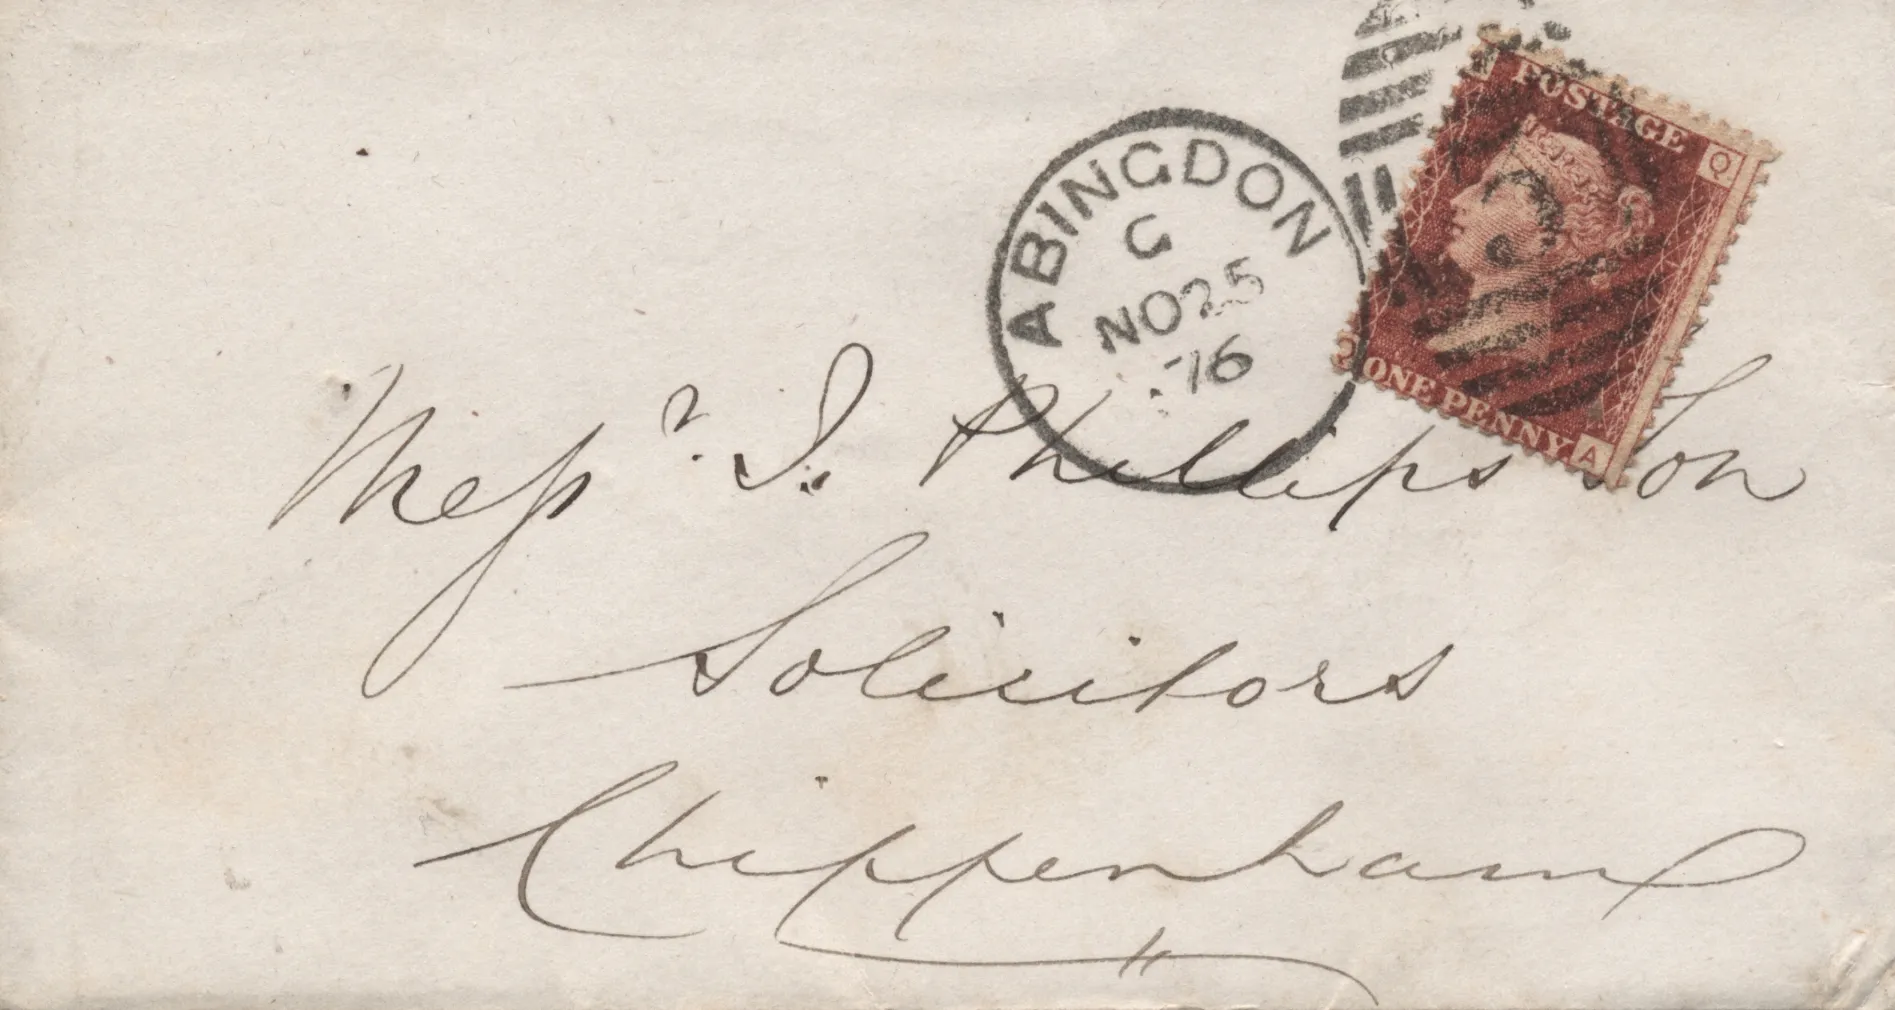 POSTAGE
Q
ABINGDON
G
NO 25
76
ONE PENNY
Q
A
Messrs. J. Phillips Son
Solicitors
Chippenham